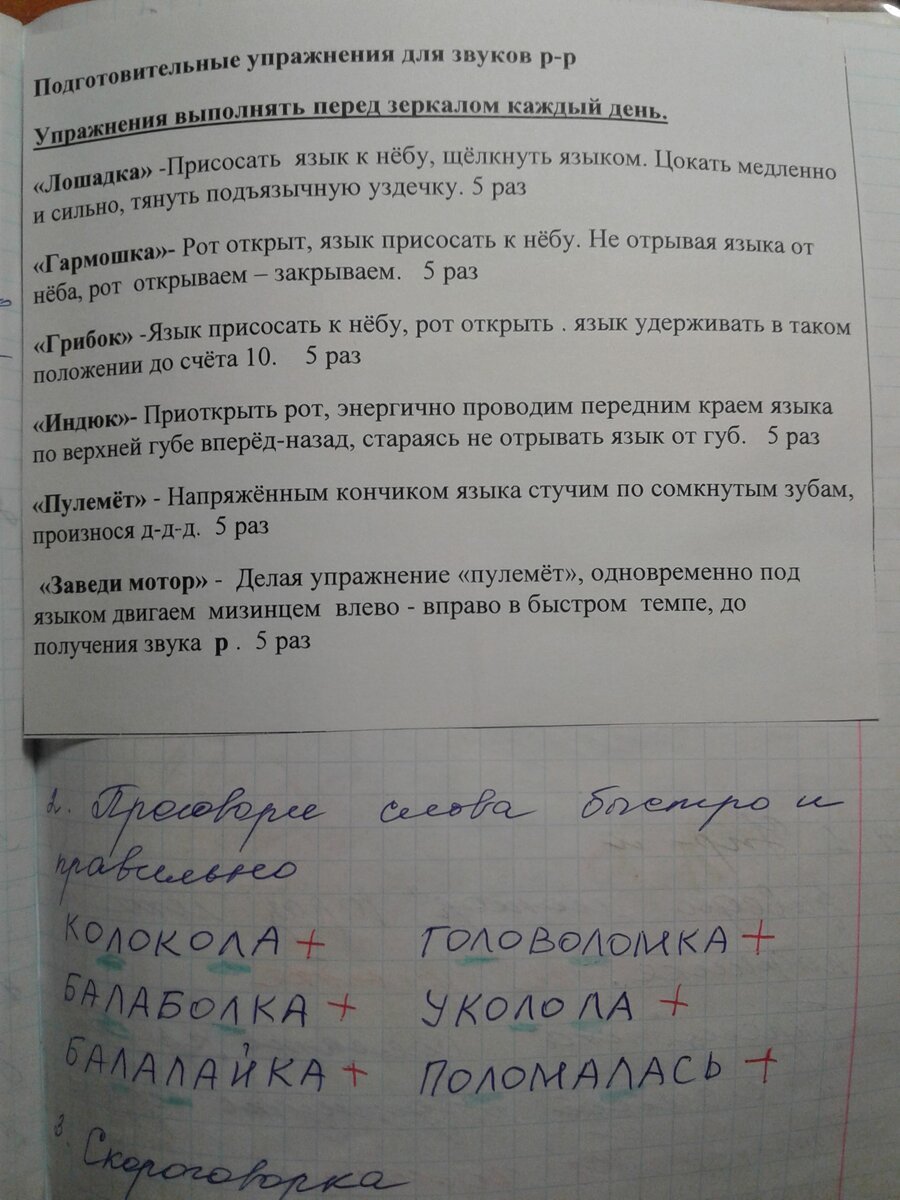 Подготовительные упражнения для звуков р-р
Упражнения выполнять перед зеркалом каждый день.
«Лошадка» -Присосать язык к нёбу, щёлкнуть языком. Цокать медленно
и сильно, тянуть подъязычную уздечку. 5 раз
«Гармошка»- Рот открыт, язык присосать к нёбу. Не отрывая языка от
нёба, рот открываем – закрываем. 5 раз
«Грибок» -Язык присосать к нёбу, рот открыть . язык удерживать в таком
положении до счёта 10. 5 раз
«Индюк»- Приоткрыть рот, энергично проводим передним краем языка
по верхней губе вперёд-назад, стараясь не отрывать язык от губ. 5 раз
«Пулемёт» - Напряжённым кончиком языка стучим по сомкнутым зубам,
произнося д-д-д. 5 раз
«Заведи мотор» - Делая упражнение «пулемёт», одновременно под
языком двигаем мизинцем влево - вправо в быстром темпе, до
получения звука р . 5 раз
2. Проговори слова быстро и
правильно
КОЛОКОЛА + ГОЛОВОЛОМКА +
БАЛАБОЛКА + УКОЛОЛА +
БАЛАЛАЙКА + ПОЛОМАЛАСЬ +
3. Скороговорка